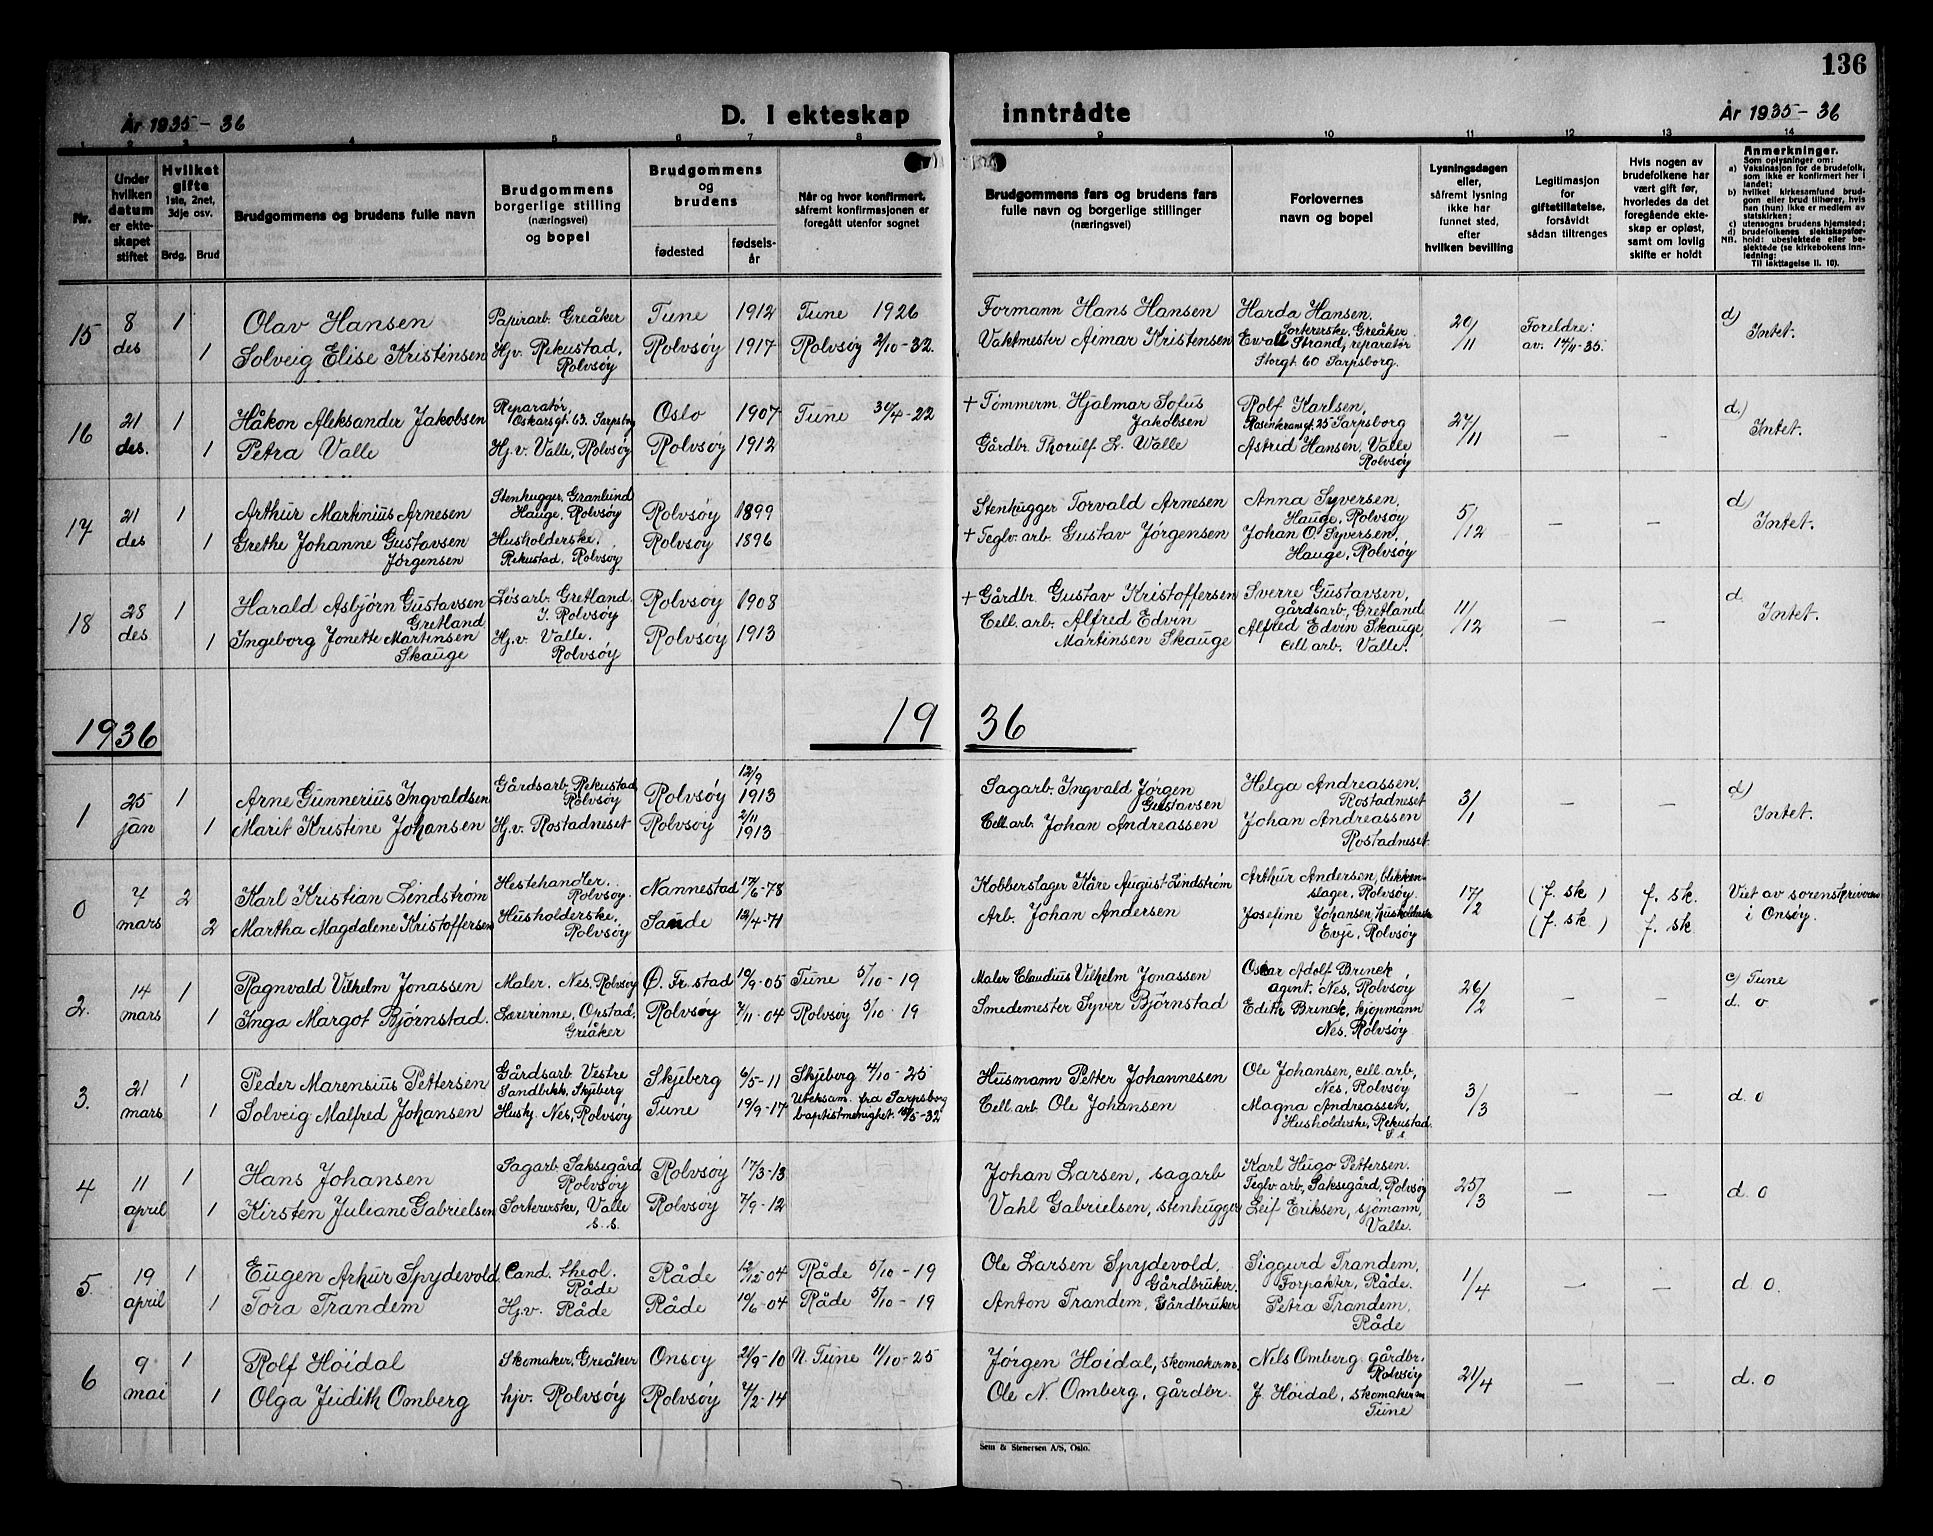 136
År 1935-36
D. I ekteskap inntrådte
År 1935-36
1 2 3 4 5 6 7 8 9 10 11 12 13 14
Nr.
Under hvilken datum er ekteskapet stiftet
Hvilket gifte 1ste, 2net, 3dje osv.
Brdg. Brud
Brudgommens og brudens fulle navn
Brudgommens borgerlige stilling (næringsvei) og bopel
Brudgommens og brudens
fødested fødselsår
Når og hvor konfirmert, såfremt konfirmasjonen er foregått utenfor sognet
Brudgommens fars og brudens fars fulle navn og borgerlige stillinger (næringsvei)
Forlovernes navn og bopel
Lysningsdagen eller, såfremt lysning ikke har funnet sted, efter hvilken bevilling
Legitimasjon for giftetillatelse, forsåvidt sådan tiltrenges
Hvis nogen av brudefolkene har vært gift før, hvorledes da det foregående ekteskap er opløst, samt om lovlig skifte er holdt
Anmerkninger.
Som oplysninger om:
a) Vaksinasjon for de brudefolk, som ikke er konfirmert her i landet;
b) hvilket kirkesamfund brudgom eller brud tilhører, hvis han (hun) ikke er medlem av statskirken;
c) utensogns brudens hjemsted;
d) brudefolkenes slektskapsforhold: ubeslektede eller beslektede (se kirkebokens innledning;
NB. Til iakttagelse II. 10).
15 8 des 1 Olav Hansen Papirarb. Greåker Tune 1912 Tune 1926 Formann Hans Hansen Harda Hansen. Sortererske, Greåker 20/11 Foreldre: av. 14/11-35. d) Intet.
1 Solveig Elise Kristinsen Hj.v. Rekustad, Rolvsøy Rolvsøy 1917 Rolvsøy 2/10-32. Vaktmester Aimar Kristensen Ewald Strand, reparatør Storgt. 60 Sarpsborg.
16 21 des. 1 Håkon Aleksander Jakobsen Reparatør, Oskarsgt. 63. Sarpsborg Oslo 1907 Tune 30/4-22 + Tømmerm. Hjalmar Sofus Jakobsen Rolf Karlsen, Rosenkransgt. 25 Sarpsborg 27/11 – – d.) Intet.
1 Petra Valle Hj.v. Valle, Rolvsøy Rolvsøy 1912 Gårdbr. Thorulf L. Walle Astrid Hansen, Valle Rolvsøy
17 21 des 1 Arthur Martinius Arnesen Stenhugger, Granlund Hauge, Rolvsøy Rolvsøy 1899 Stenhugger Torvald Arnesen Anna Syversen, Hauge, Rolvsøy 5/12 – – d) Intet.
1 Grethe Johanne Gustavsen Jørgensen Husholderske. Rekustad, Rolvsøy Rolvsøy 1896 + Teglv. arb. Gustav Jørgensen Johan O. Syversen, Hauge, Rolvsøy
18 28 des 1 Harald Asbjørn Gustavsen Gretland Løsarb. Gretland. I. Rolvsøy Rolvsøy 1908 + Gårdbr. Gustav Kristoffersen Sverre Gustavsen, gårdsarb, Gretland 11/12 – – d Intet.
1 Ingeborg Jonette Martinsen Skauge Hj.v. Valle. Rolvsøy Rolvsøy 1913 Cell. arb. Alfred Edvin Martinsen Skauge Alfred Edvin Skauge, cell arb. Valle.
1936 1936
1 25 jan 1 Arne Gunnerius Ingvaldsen Gårdsarb. Rekustad Rolvsøy Rolvsøy 12/9 1913 Sagarb. Ingvald Jørgen Gustavsen Helga Andreassen. Rostadneset 3/1 – – d) Intet.
1 Marit Kristine Johansen Hj.v. Rostadneset Rolvsøy 2/11 1913 Cell. arb. Johan Andreassen Johan Andreassen Rostadneset
0 7 mars 2 Karl Kristian Lindstrøm Hestehandler. Rolvsøy. Nannestad 17/6-78 Kobberslager Kåre August Lindstrøm Arthur Andersen, blikkenslager, Rolvsøy. 17/2 (f. sk) f. sk. Viet av sorenskriveren i Onsøy.
2 Martha Magdalene Kristoffersen Husholderske. Rolvsøy Sande 12/4-71 Arb. Johan Andersen Josefine Johansen, husholderske Evje, Rolvsøy (f. sk) f. sk
2. 14 mars 1 Ragnvald Vilhelm Jonassen Maler. Nes, Rolvsøy Ø. Fr.stad 19/9-05 Tune 5/10-19 Maler Claudius Vilhelm Jonassen Oskar Adolf Brinck agent. Nes, Rolvsøy 26/2 – – c) Tune
1 Inga Margot Bjørnstad. Lærerinne, Opstad, Greåker Rolvsøy 7/11-04 Rolvsøy 5/10-19 Smedemester Syver Bjørnstad Edith Brinck, kjøpmann Nes. Rolvsøy d. o
3. 21 mars 1 Peder Marensius Pettersen Gårdsarb Vestre Sandbekk, Skjeberg Skjeberg 6/5-11 Skjeberg 4/10-25 Husmann Petter Johannesen Ole Johansen, cell. arb, Nes, Rolvsøy 3/3 – – d. o
1 Solveig Malfred Johansen Husky. Nes, Rolvsøy Tune 19/9-17 Uteksam. fra Sarpsborg baptistmenighet 15/5-32 Cell. arb Ole Johansen Magna Andreassen, Husholderske, Rekustad. S s
4 11 april 1 Hans Johansen Sagarb. Saksegård Rolvsøy Rolvsøy 17/3-13 Johan Larsen, sagarb Karl Hugo Pettersen. Teglv. arb, Saksegård, Rolvsøy 25/3 – – d. o
1 Kirsten Juliane Gabrielsen Sortererske, Valle s. s. Rolvsøy 7/9-12 Vahl Gabrielsen, stenhugger Leif Eriksen, sjømann, Valle.
5. 19 april 1 Eugen Arhur Spydevold. Cand. theol. Råde Råde 12/12-04 Råde 5/10-19 Ole Larsen Spydevold. Gårdbruker. Siggurd Trandem, Forpakter, Råde. 1/4 – – d. o.
1 Tora Trandem Hj.v. Råde Råde 19/6-04 Råde 5/10-19 Anton Trandem, Gårdbruker Petra Trandem, Råde
6 9 mai 1 Rolf Høidal Skomaker, Greåker Onsøy 21/9-10 N. Tune 11/10-25 Jørgen Høidal, skomakerm. Nils Omberg. gårdbr. Rolvsøy 21/4 – – d. o
1 Olga Judith Omberg hjv. Rolvsøy Rolvsøy 4/2-14 Ole N. Omberg, gårdbr. J. Høidal, skomakerm Tune
Sem & Stenersen A/S, Oslo.